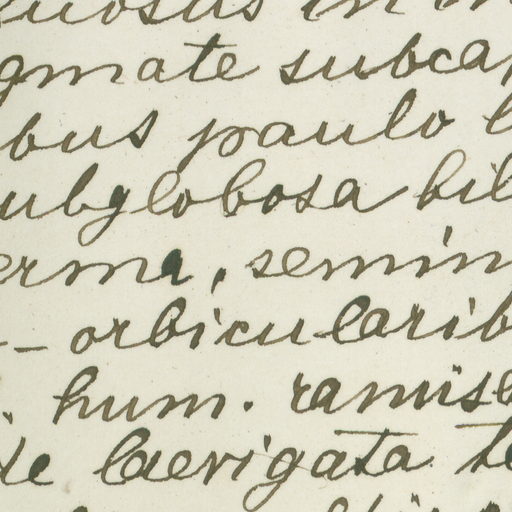 gmate subca
bus paulo l
ubglobosa bil
erma, semin
- orbicularib
. hum. ramise
laevigata te